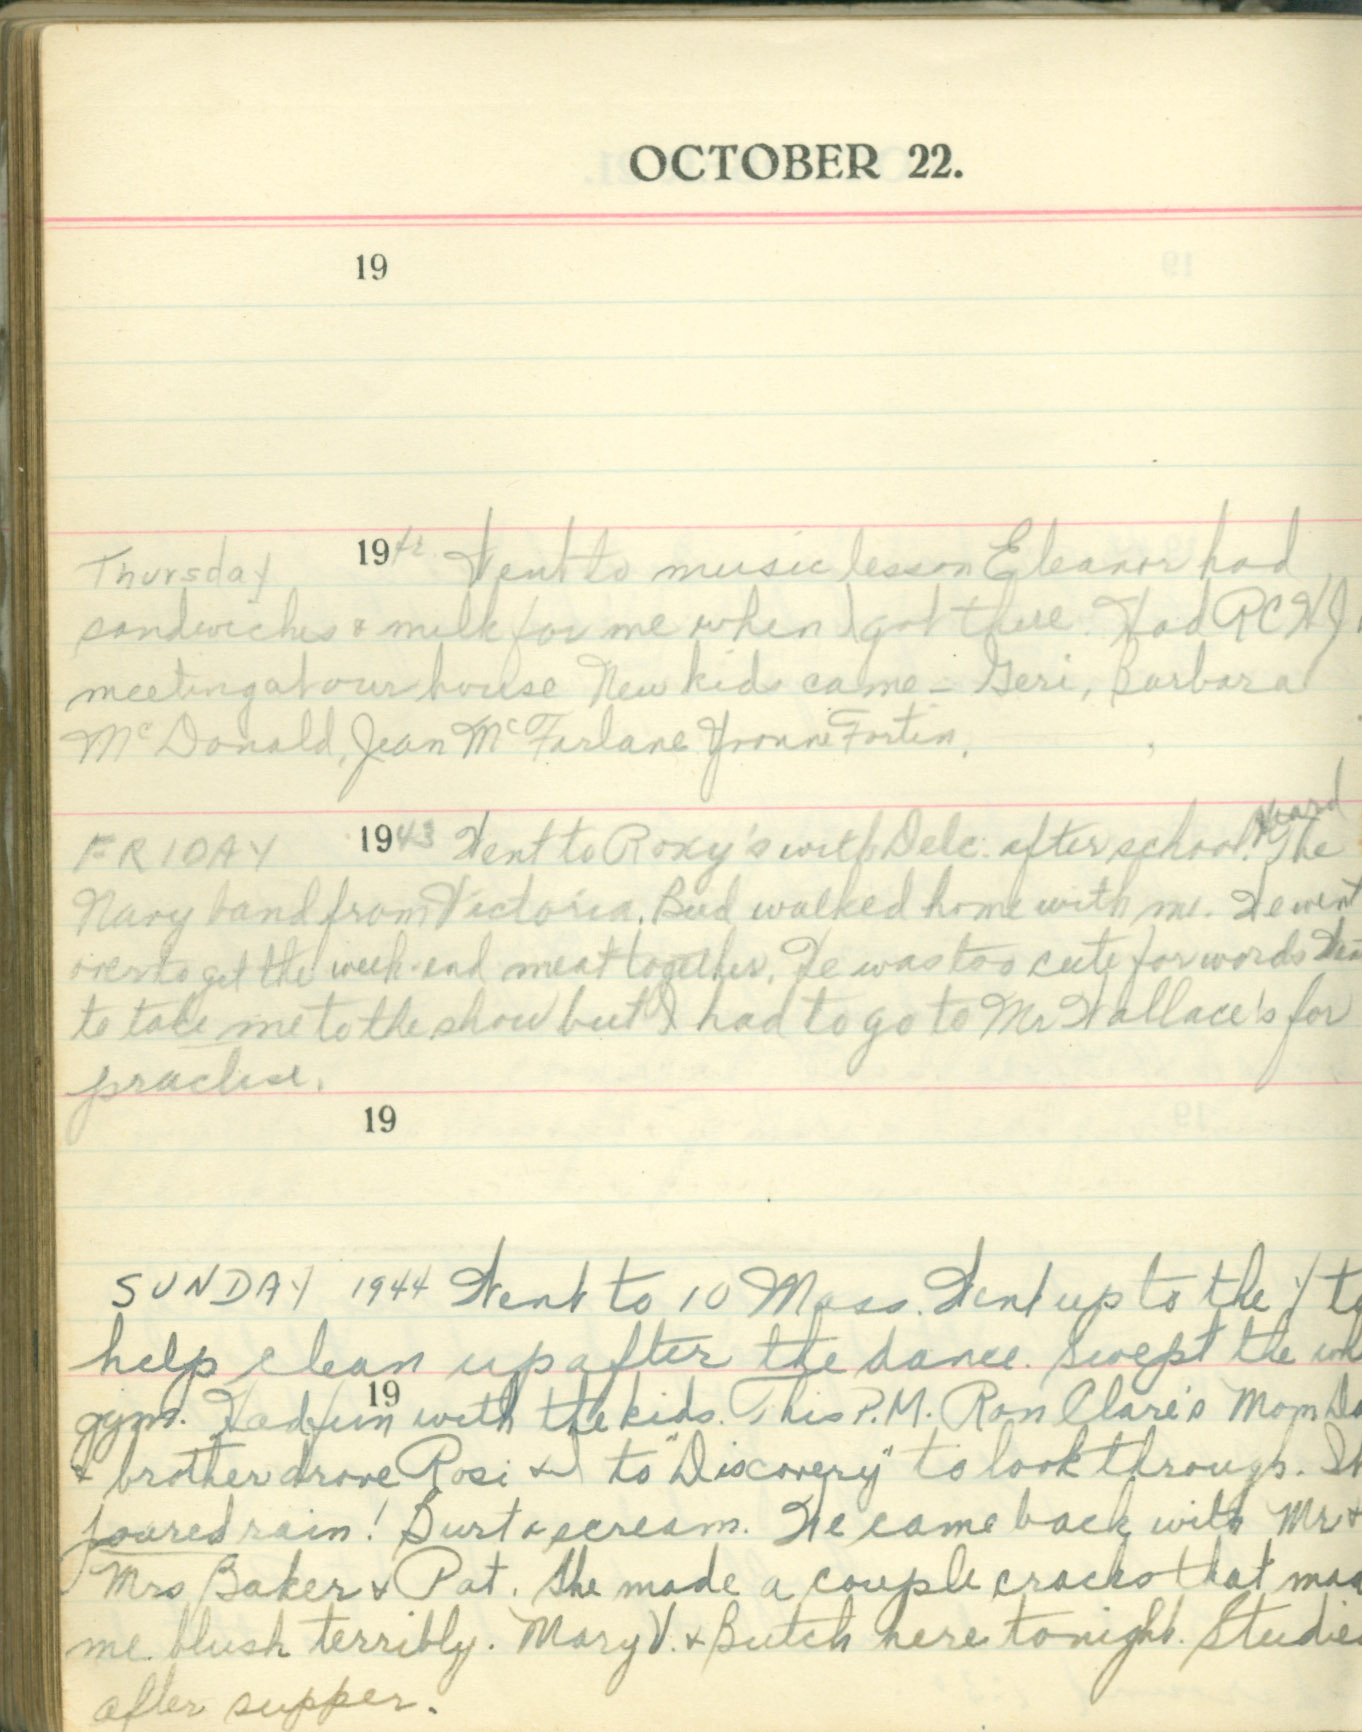 OCTOBER 22.
19
Thursday 1942 Went to music lesson Eleanor had
sandwiches & milk for me when I got there. Had RCHJ
meeting at our house New kids came - Geri, Barbara
McDonald, Jean McFarlane Yvonne Fortin.
Heard
FRIDAY 1943 Went to Roxy's with Delc. after school. The
Navy band from Victoria. Bud walked home with me. We went
over to get the week-end meat together. He was too cute for words
to take me to the show but I had to go to Mr Wallace's for
practise.
19
SUNDAY 1944 Went to 10 Mass. Went up to the Y to
help clean up after the dance. Swept the
gym. Had fun with the kids. This P.M. Ron Clare's Mom
19
& brother drove Rosi & I to "Discovery" to look through.
poured rain! Burt a scream. We came back with Mr &
Mrs Baker & Pat. She made a couple cracks that
me blush terribly. Mary V. & Butch here tonight.
after supper.